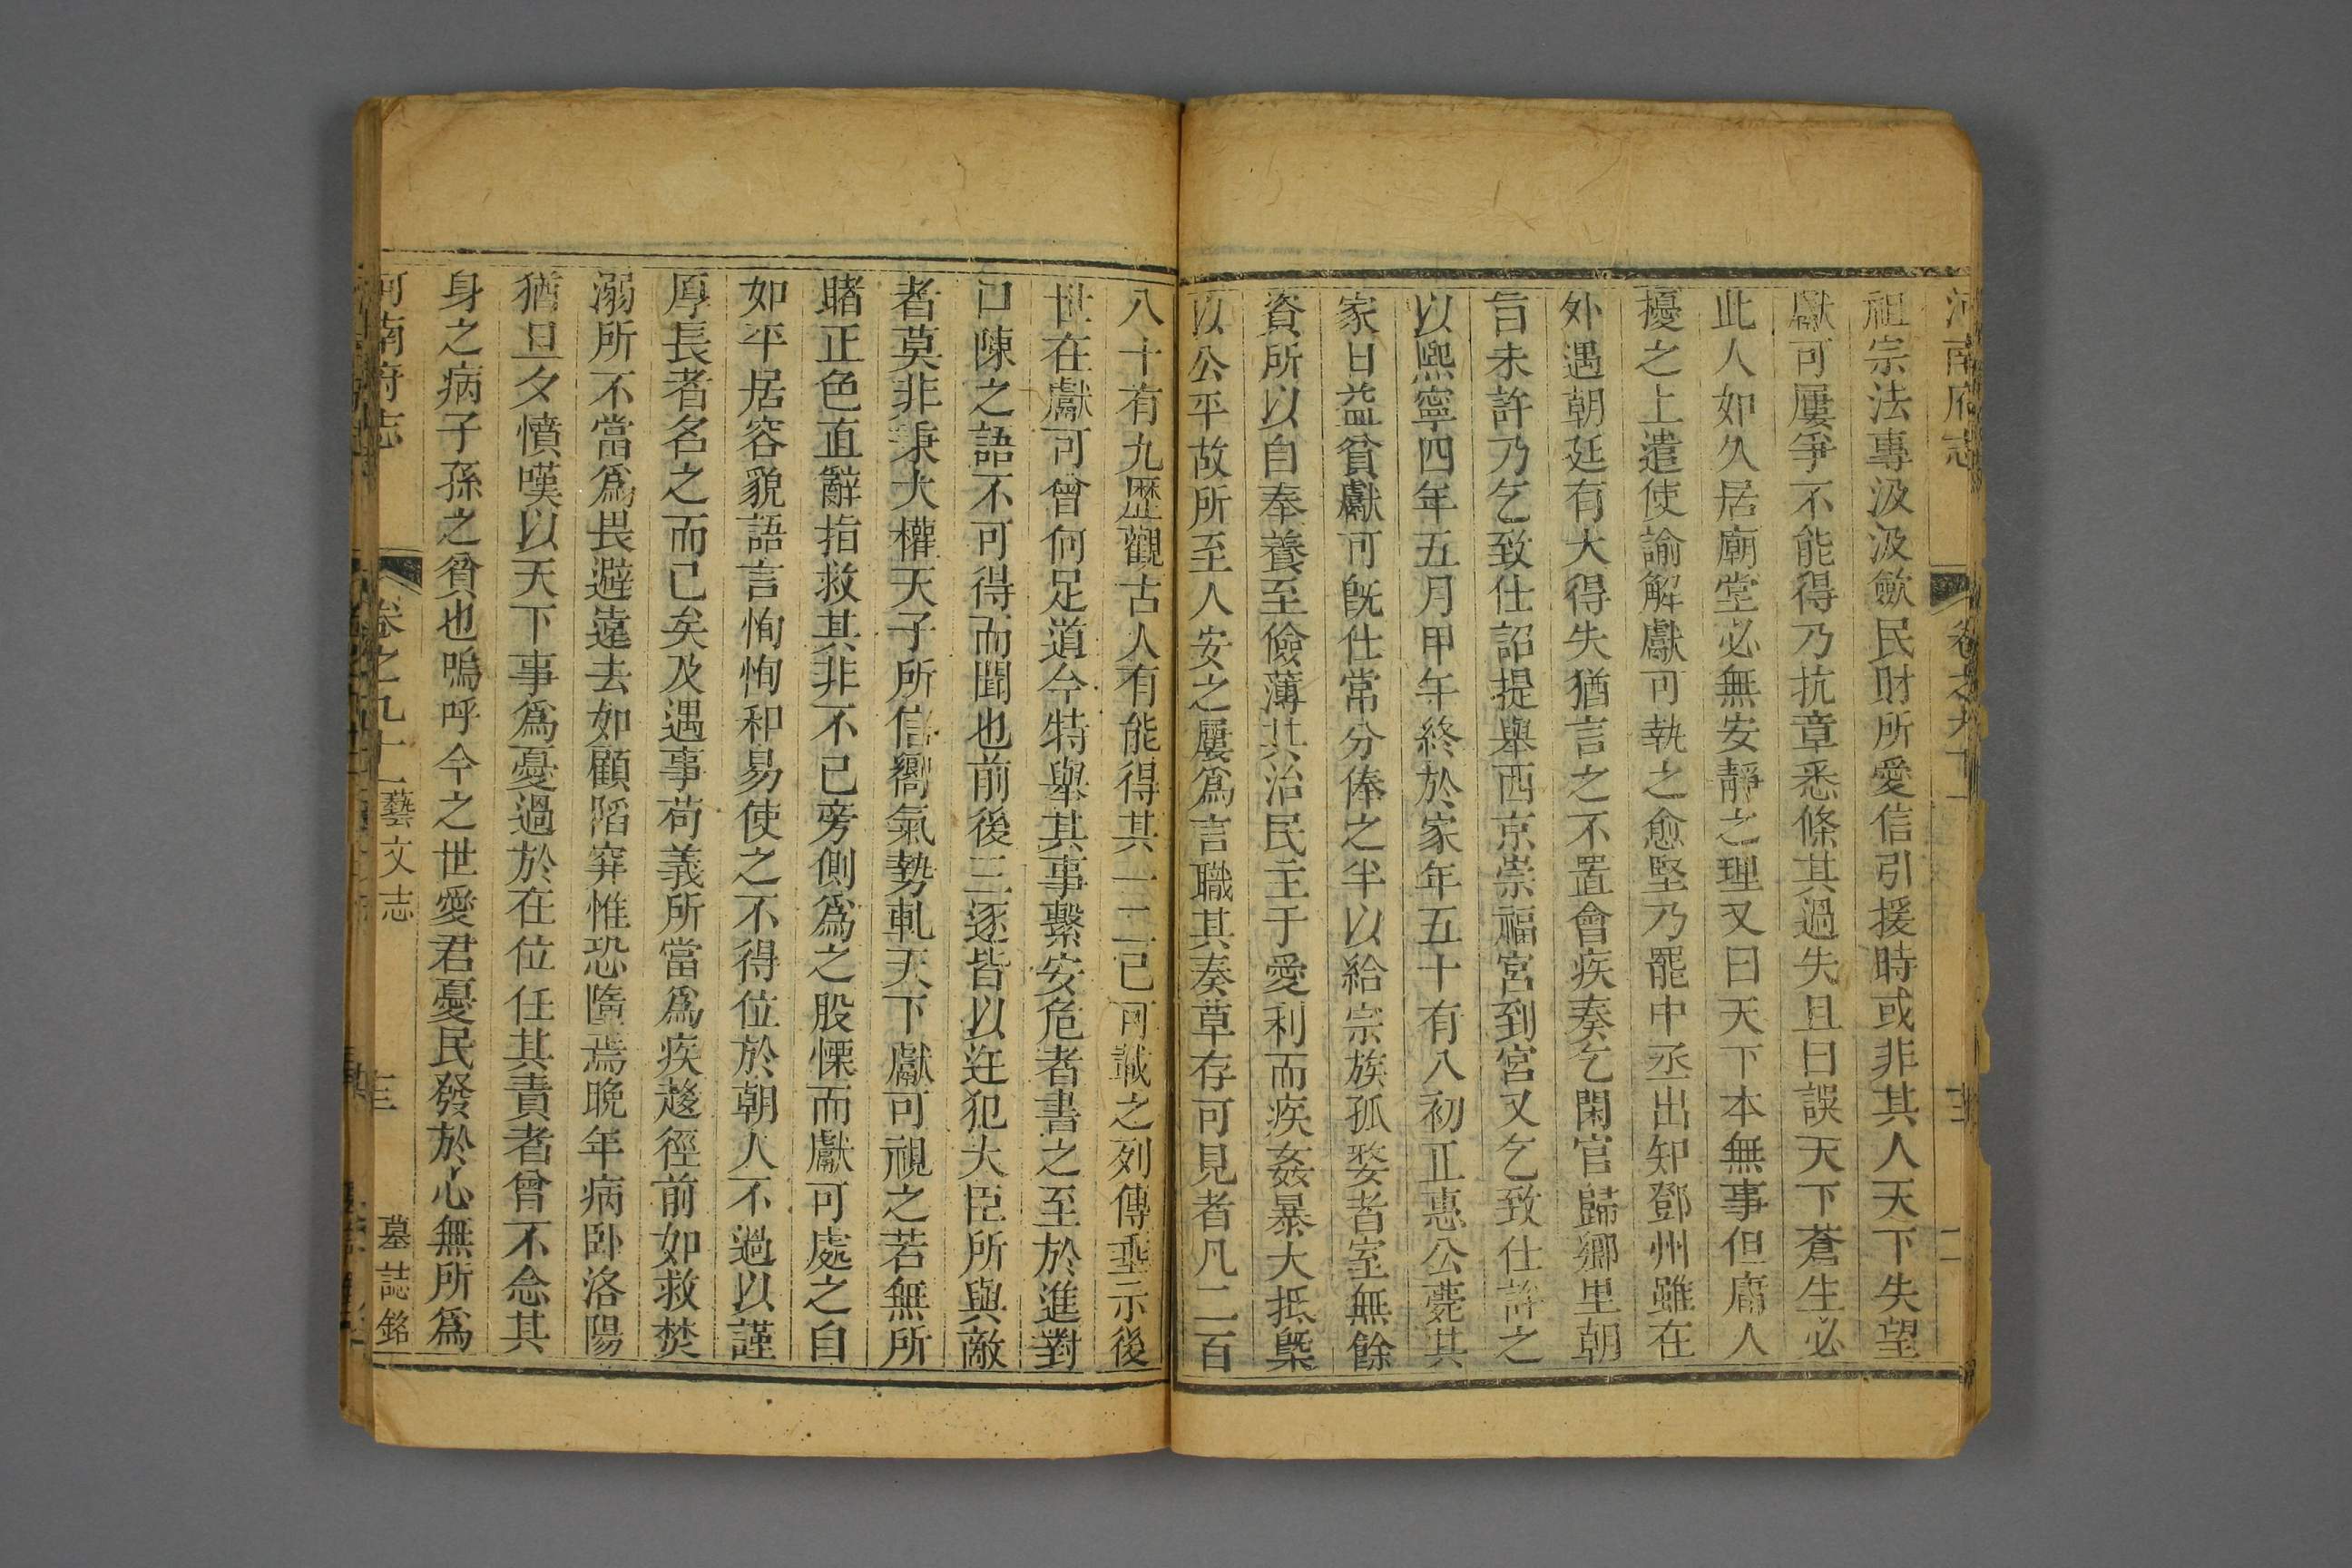 河南府志
卷之九十一
祖宗法專汲汲歛民財所愛信引援時或非其人天下失望
獻可屢爭不能得乃抗章悉條其過失且曰誤天下蒼生必
此人如久居廟堂必無安靜之理又曰天下本無事但庸人
擾之上遣使諭解獻可執之愈堅乃罷中丞出知鄧州雖在
外遇朝廷有大得失猶言之不置會疾奏乞閑官歸鄉里朝
旨未許乃乞致仕詔提舉西京崇福宮到宮又乞致仕許之
以熙寧四年五月甲午終於家年五十有八初正惠公薨其
家日益貧獻可既仕常分俸之半以給宗族孤婺者室無餘
資所以自奉養至儉薄其治民主于愛利而疾姦暴大抵槩
以公平故所至人安之屢爲言職其奏草存可見者凡二百
八十有九歷觀古人有能得其一二已可載之列傳垂示後
世在獻可曾何足道今特舉其事繫安危者書之至於進對
口陳之語不可得而聞也前後三逐皆以迕犯大臣所與敵
者莫非秉大權天子所信嚮氣勢軋天下獻可視之若無所
睹正色直辭指救其非不已旁側爲之股慄而獻可處之自
如平居容貌語言恂恂和易使之不得位於朝人不過以謹
厚長者名之而已矣及遇事苟義所當爲疾趨徑前如救焚
溺所不當爲畏避遠去如顧陷穽惟恐墮焉晚年病卧洛陽
猶旦夕憤嘆以天下事爲憂過於在位任其責者曾不念其
身之病子孫之貧也嗚呼今之世愛君憂民發於心無所爲
河南府志
卷之九十一
藝文志
三
墓誌銘